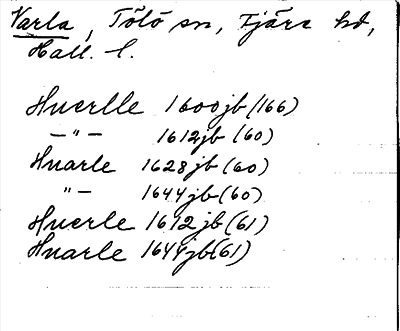 Varla, Tölö sn, Fjäre hd,
Hall. l.
Huerlle 1600jb (166)
—"— 1612jb (60)
Huarle 1628jb (60)
"— 1644jb (60)
Huerle 1612jb (61)
Huarle 1644jb (61)